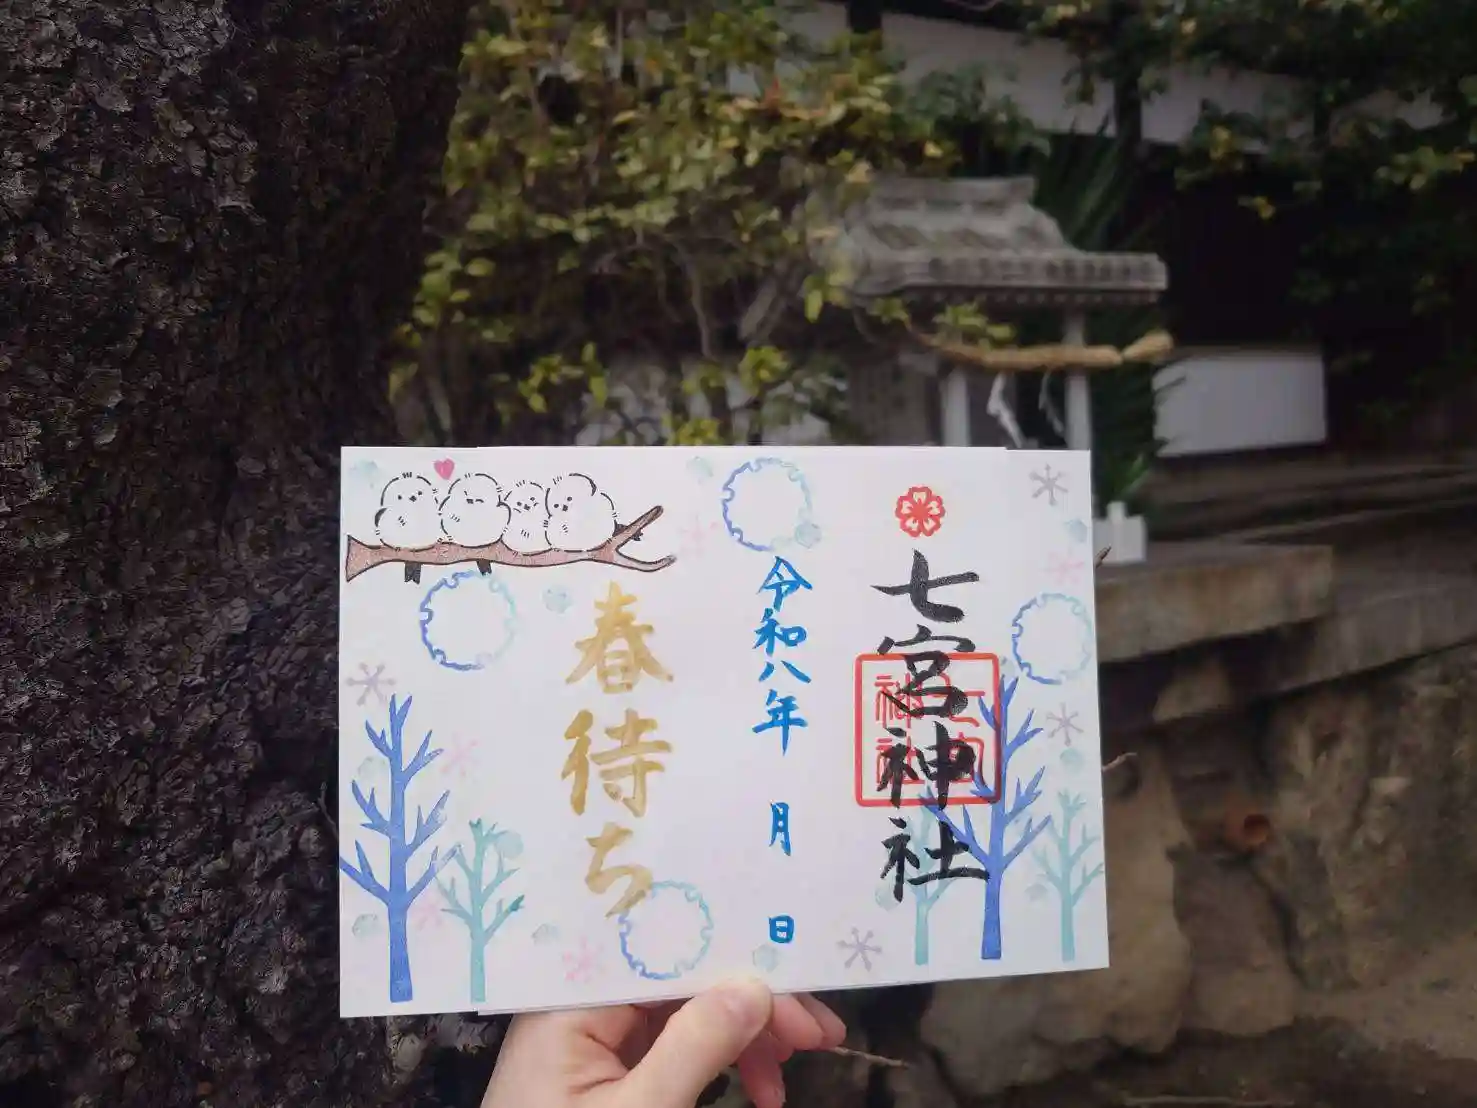 七宮神社
七宮
神社
令和八年 月 日
春待ち